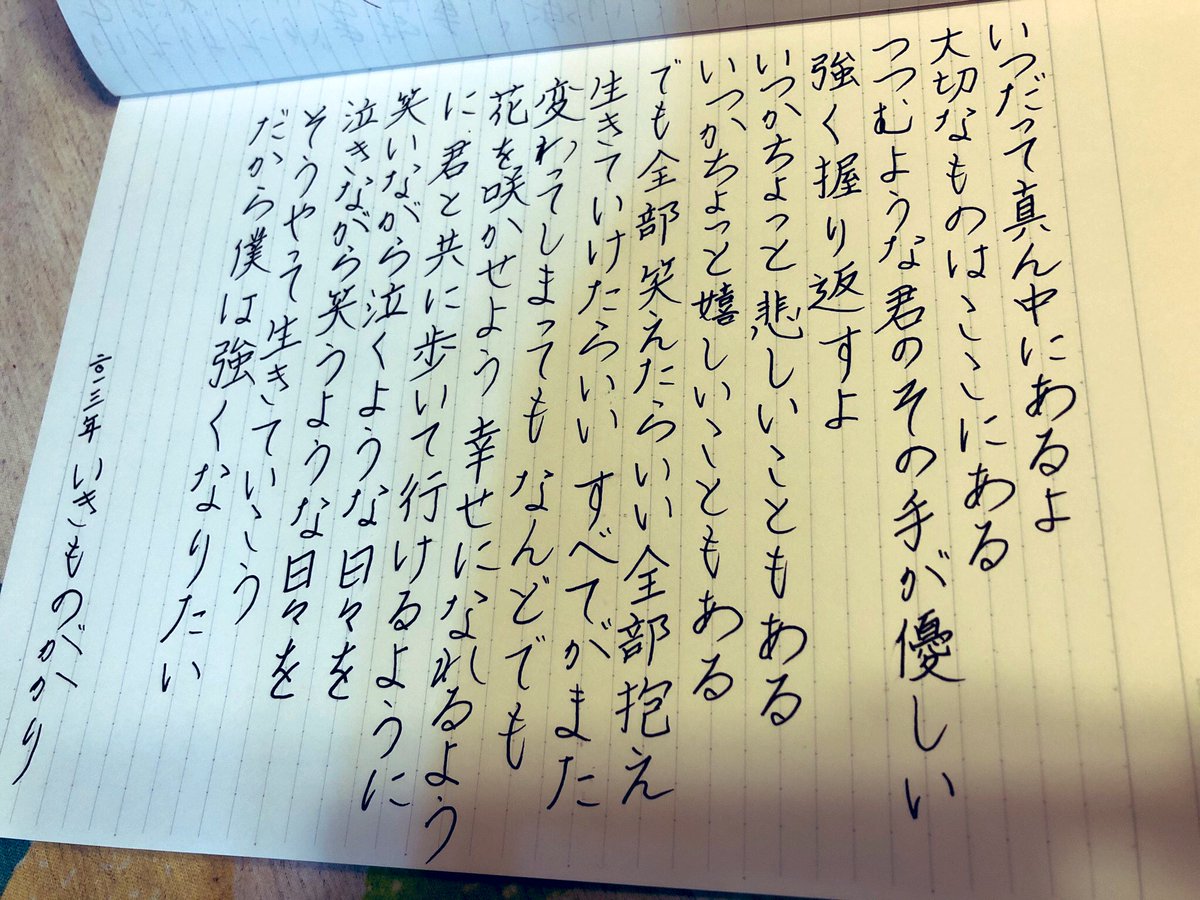 いつだって真ん中にあるよ
大切なものはここにある
つつむような君のその手が優しい
強く握り返すよ
いつかちょっと悲しいこともある
いつかちょっと嬉しいこともある
でも全部笑えたらいい 全部抱え
生きていけたらいい すべてがまた
変わってしまっても なんどでも
花を咲かせよう 幸せになれるよう
に 君と共に歩いて行けるように
笑いながら泣くような日々を
泣きながら笑うような日々を
そうやって生きていこう
だから僕は強くなりたい
二〇一三年 いきものがかり